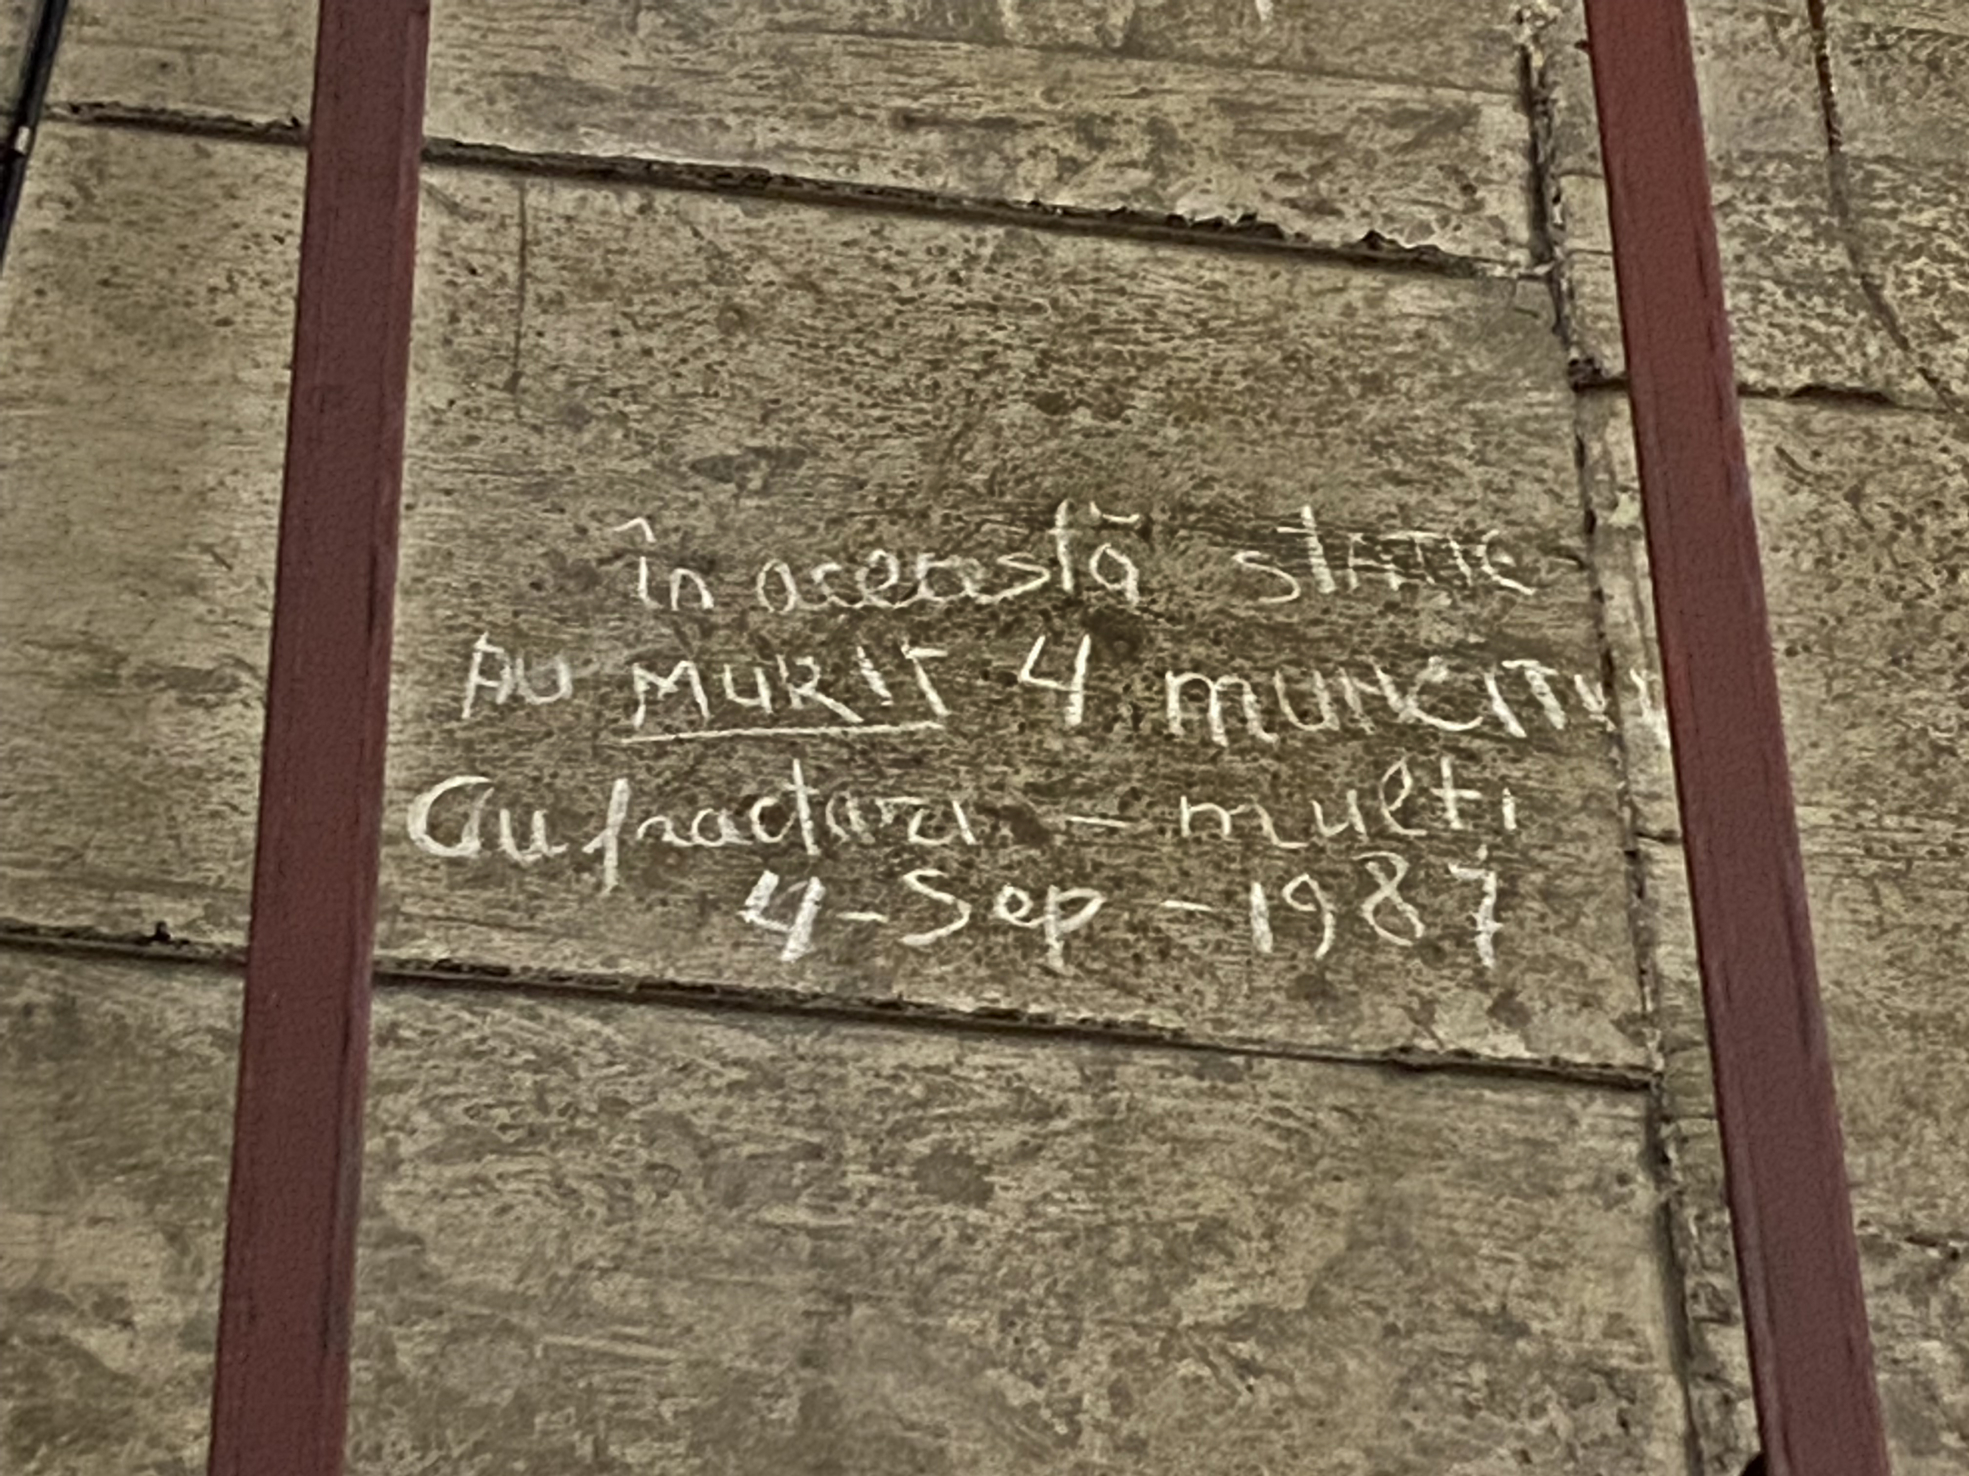 în această STATIE
AU MURIT 4 MUNCITORI
au fracturi - multi
4-Sep-1987